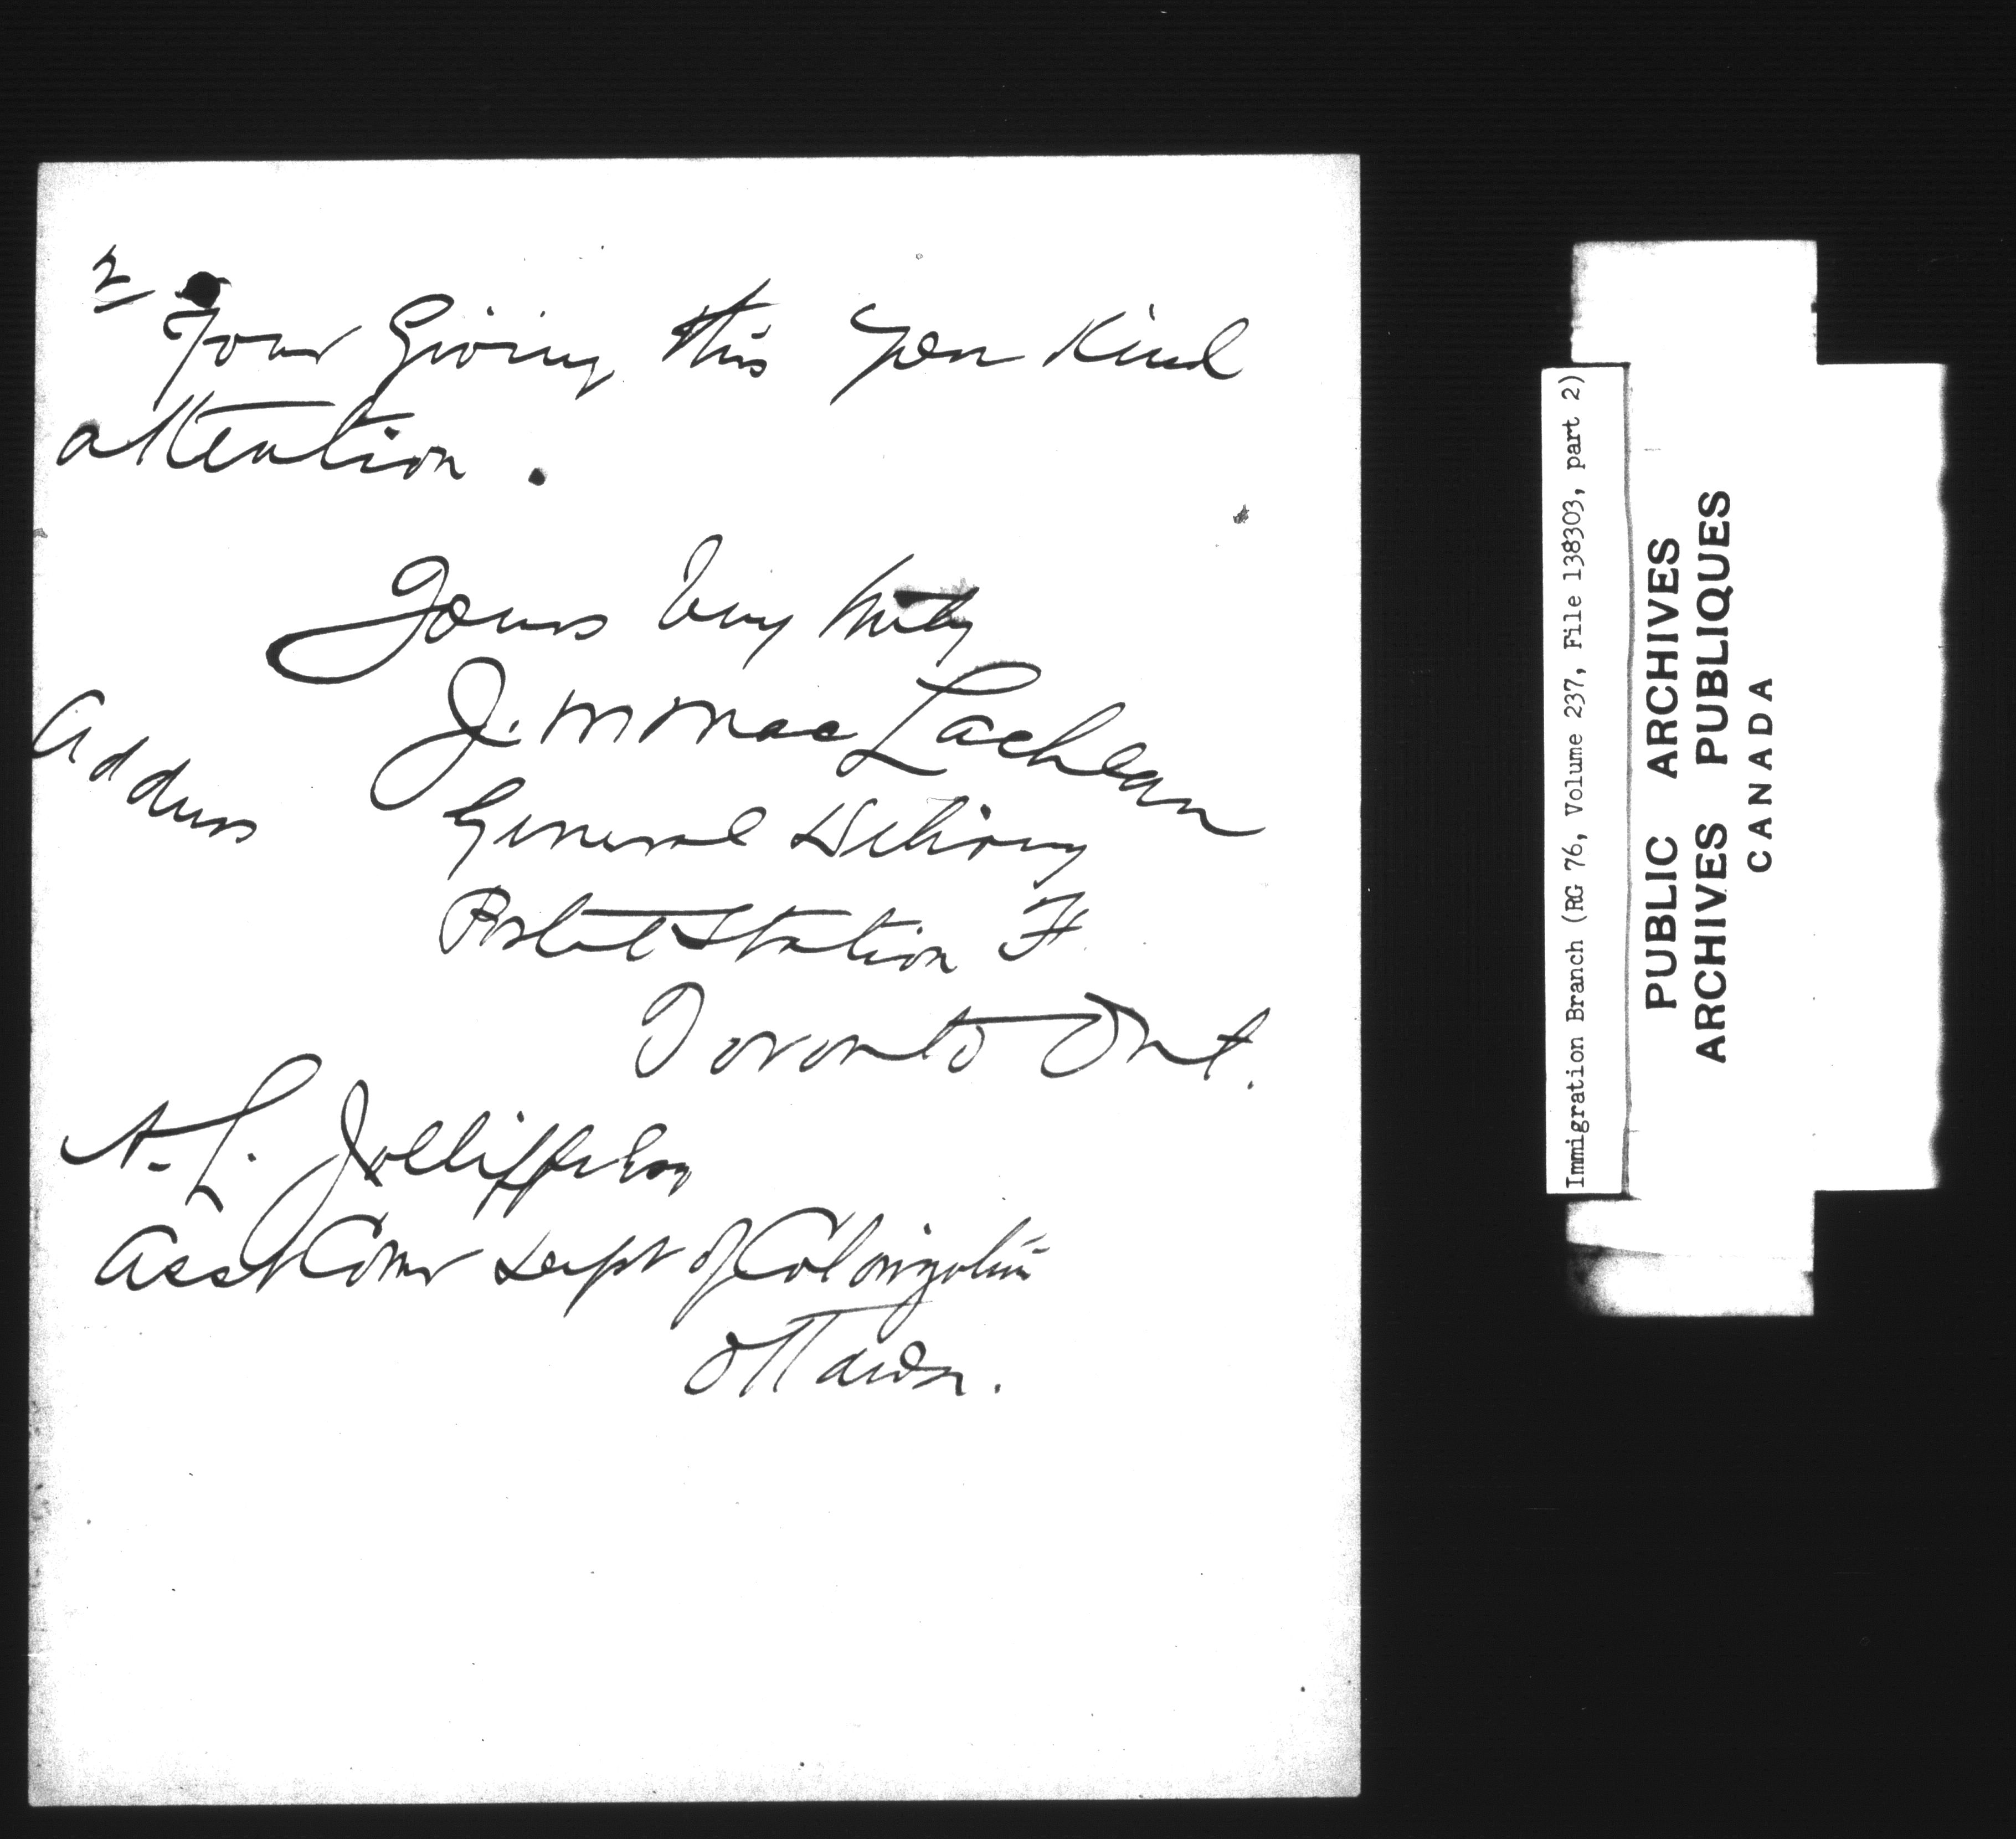 2
Your Giving this your Kind
attention.
Yours Very truly
J. M MacLachlan
Address
General Delivery
Postal Station F.
Toronto Ont.
A. L. Jolliffe Esq
Asst Comr Dept of Colonization
Ottawa.
Immigration Branch (RG 76, Volume 237, File 138303, part 2)
PUBLIC ARCHIVES
ARCHIVES PUBLIQUES
CANADA